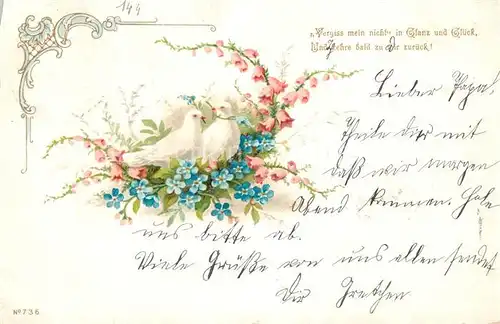 144
„Vergiss mein nicht“ in Glanz und Glück,
Und kehre bald zu mir zurück!
Lieber Papa,
Theile dir mit
daß wir morgen
Abend kommen. Hole
uns bitte ab.
Viele Grüße von uns allen sendet
Dir Gretchen
No 736